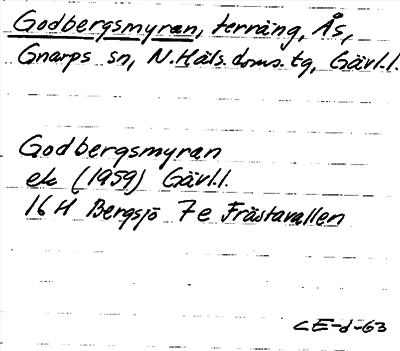 Godbergsmyran, terräng, Ås,
Gnarps sn, N.Häls.doms.tg, Gävl.l.
Godbergsmyran
ek (1959) Gävl.l.
16 H Bergsjö 7e Frästavallen
CE-d-63